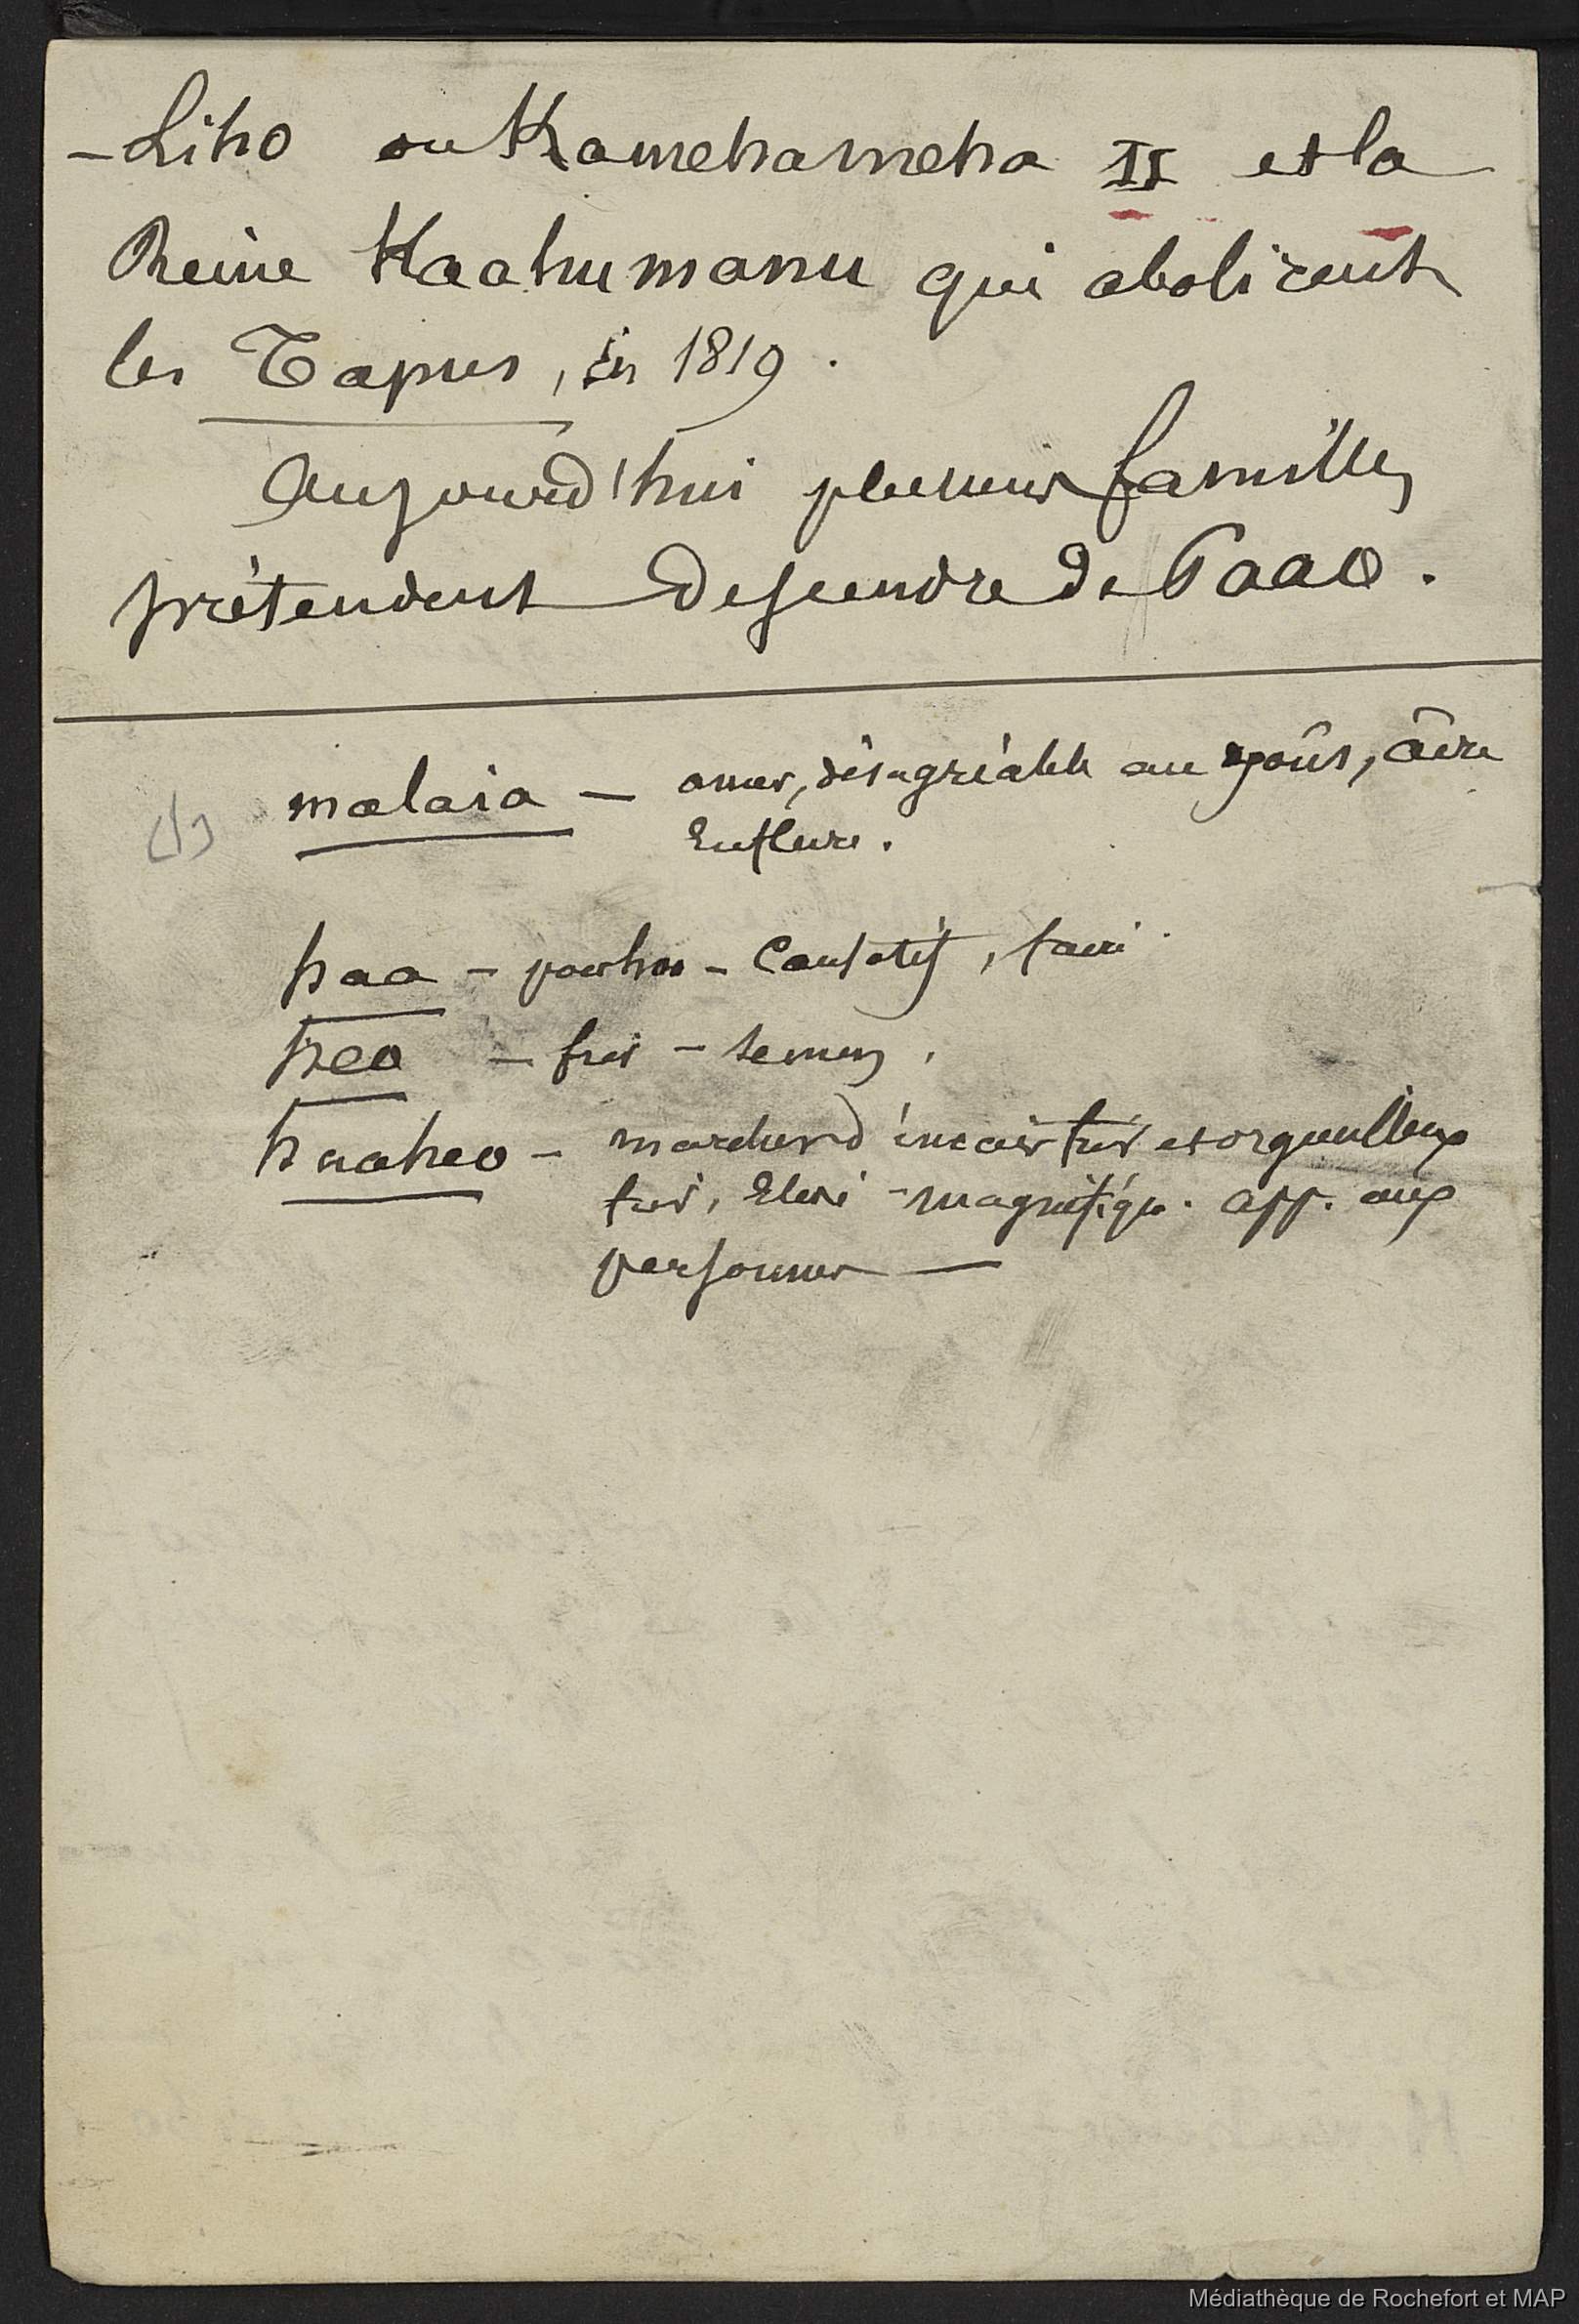 - Liho ou Kamehameha II et la
Reine Kaahumanu qui abolirent
les Tapus, en 1819.
Aujourd'hui plusieurs familles
prétendent descendre de Paao.
malaia — amer, désagréable au goût, âcre
Enflure.
haa - pour hoo - Causatif, faire
heo - fier -
haaheo - marcher d'un air fier et orgueilleux
fier, élevé - magnifique. app. aux
personnes —
Médiathèque de Rochefort et MAP